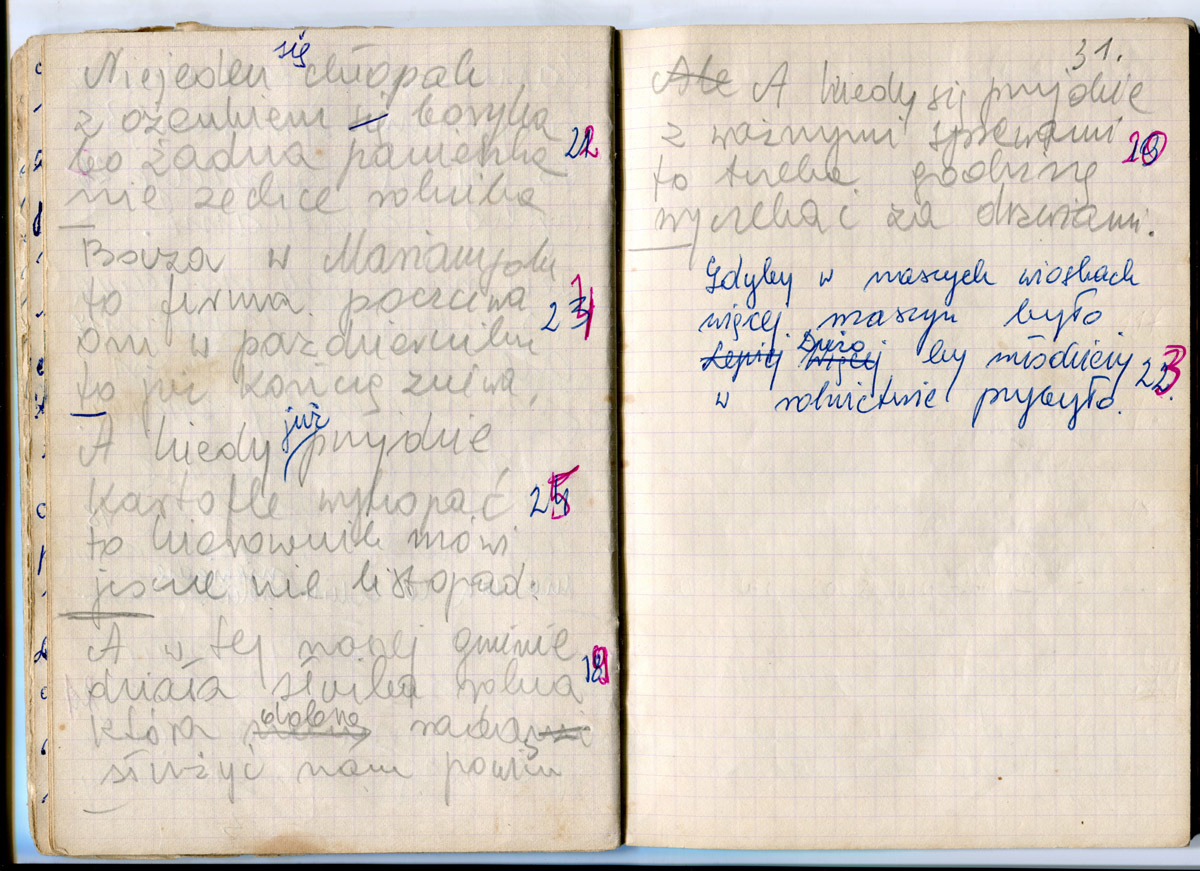 Niejeden się chłopak
z ożenkiem się boryka
bo żadna panienka 22
nie zechce rolnika
Baza w Marianspolu
to firma poczciwa
oni w październiku 24
to już kończą żniwa,
A kiedy już przyjdzie
kartofle wykopać 25
to kierownik mówi
jeszcze nie listopad.
A w tej naszej gminie
działa służba rolna 19
która dobrą radą
służyć nam powin
31.
Ale A kiedy się przyjdzie
z ważnymi sprawami
to trzeba godzinę 20
wyczekać za drzwiami.
Gdyby w naszych wioskach
więcej maszyn było
Lepiej Więcej Dużo by młodzieży
w rolnictwie przybyło. 23